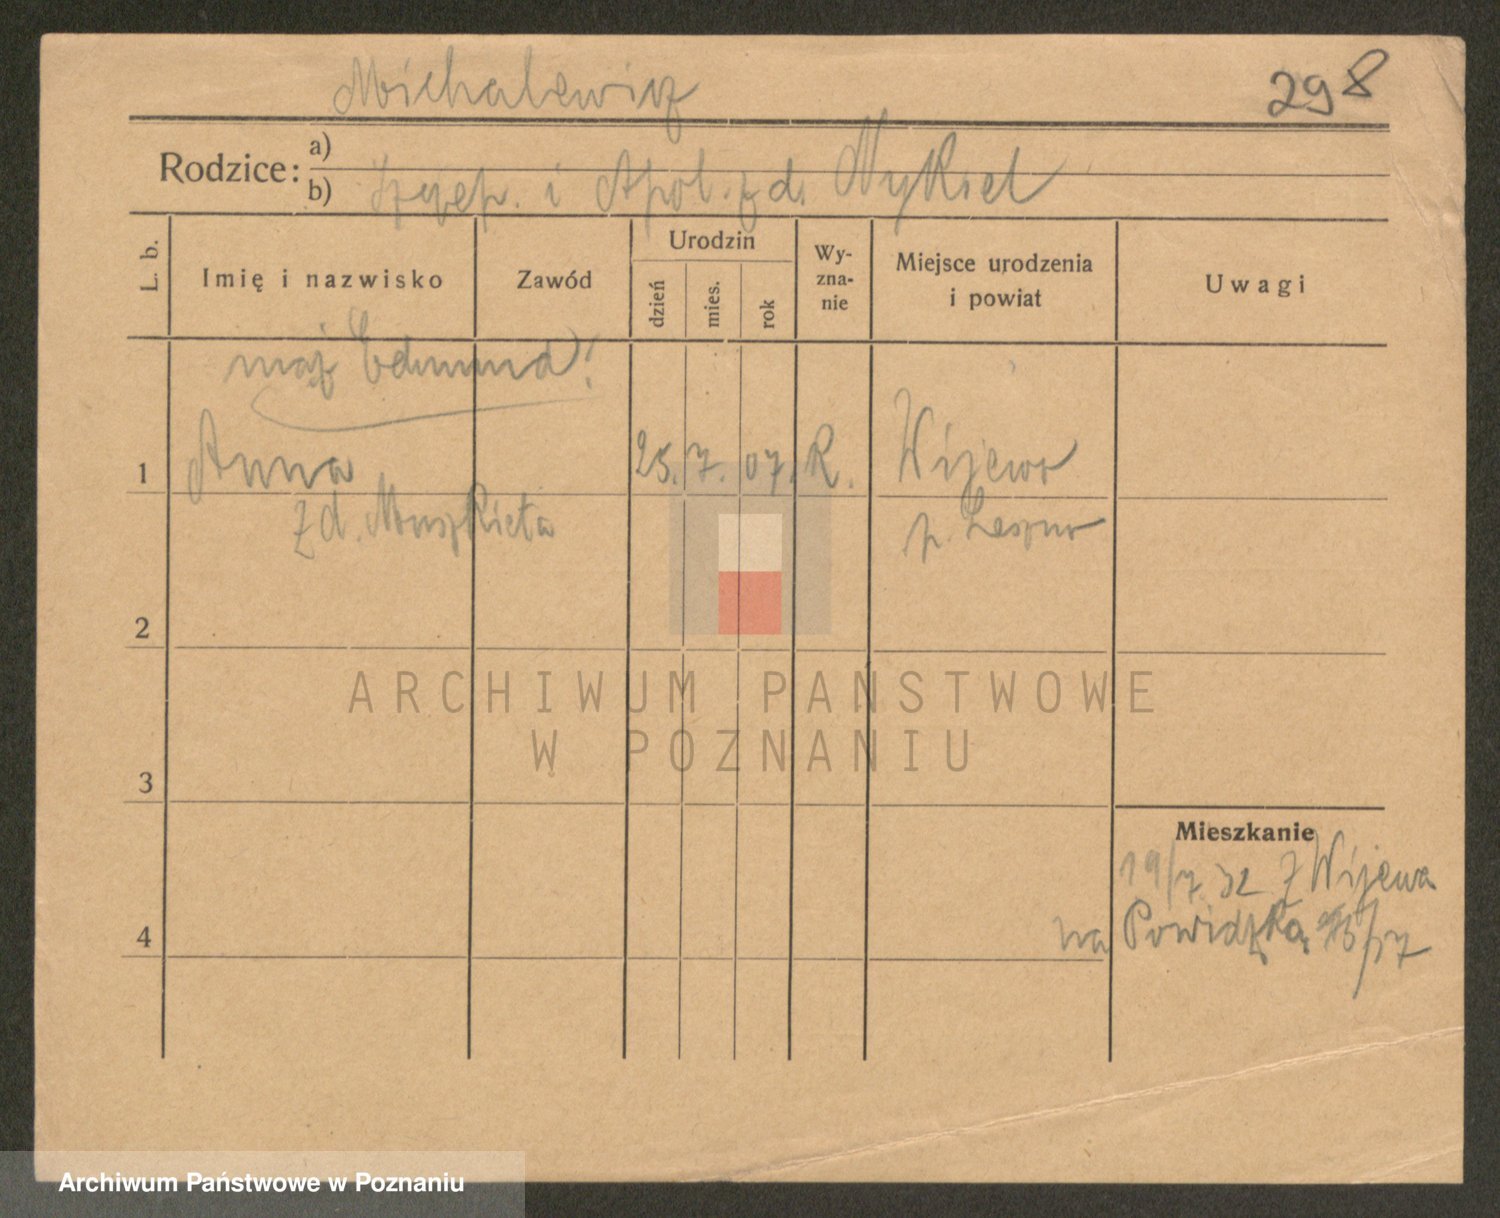 Michalewicz
298
Rodzice: a)
b) Szczep. i Apol. z d. Nykiel
L. b.
Imię i nazwisko
Zawód
Urodzin
dzień
mies.
rok
Wy-
zna-
nie
Miejsce urodzenia
i powiat
Uwagi
mąż Edmund!
1 Anna 25. 7. 07. R. Wijewo
z d. Muszkieta p. Leszno
2
ARCHIWUM PAŃSTWOWE
W POZNANIU
3
Mieszkanie
19/7. 32 z Wijewa
4 na Powidzką /17
Archiwum Państwowe w Poznaniu